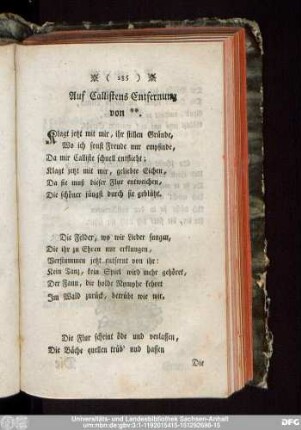 ( 185 )
Auf Callistens Entfernung
von **.
Klagt jetzt mit mir, ihr stillen Gründe,
Wo ich sonst Freude nur empfinde,
Da mir Calliste schnell entflieht;
Klagt jetzt mit mir, geliebte Eichen,
Da sie muß dieser Flur entweichen,
Die schöner jüngst durch sie geblüht.
Die Felder, wo wir Lieder sungen,
Die ihr zu Ehren nur erklungen,
Verstummen jetzt entfernt von ihr:
Kein Tanz, kein Spiel wird mehr gehöret,
Der Faun, die holde Nymphe kehret
Im Wald zurück, betrübt wie wir.
Die Flur scheint öde und verlassen,
Die Bäche quellen trüb' und hassen
Die
Universitäts- und Landesbibliothek Sachsen-Anhalt
urn:nbn:de:gbv:3:1-1192015415-151252690-15
DFG